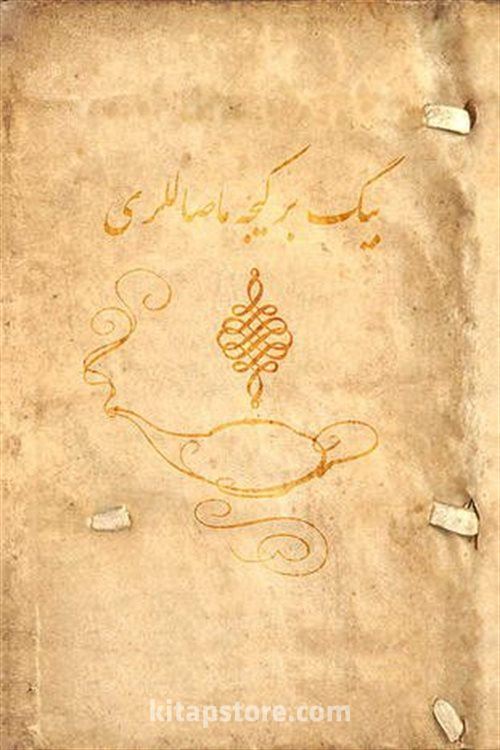 بیڭ بر گیجه ماصاللری
kitapstore.com